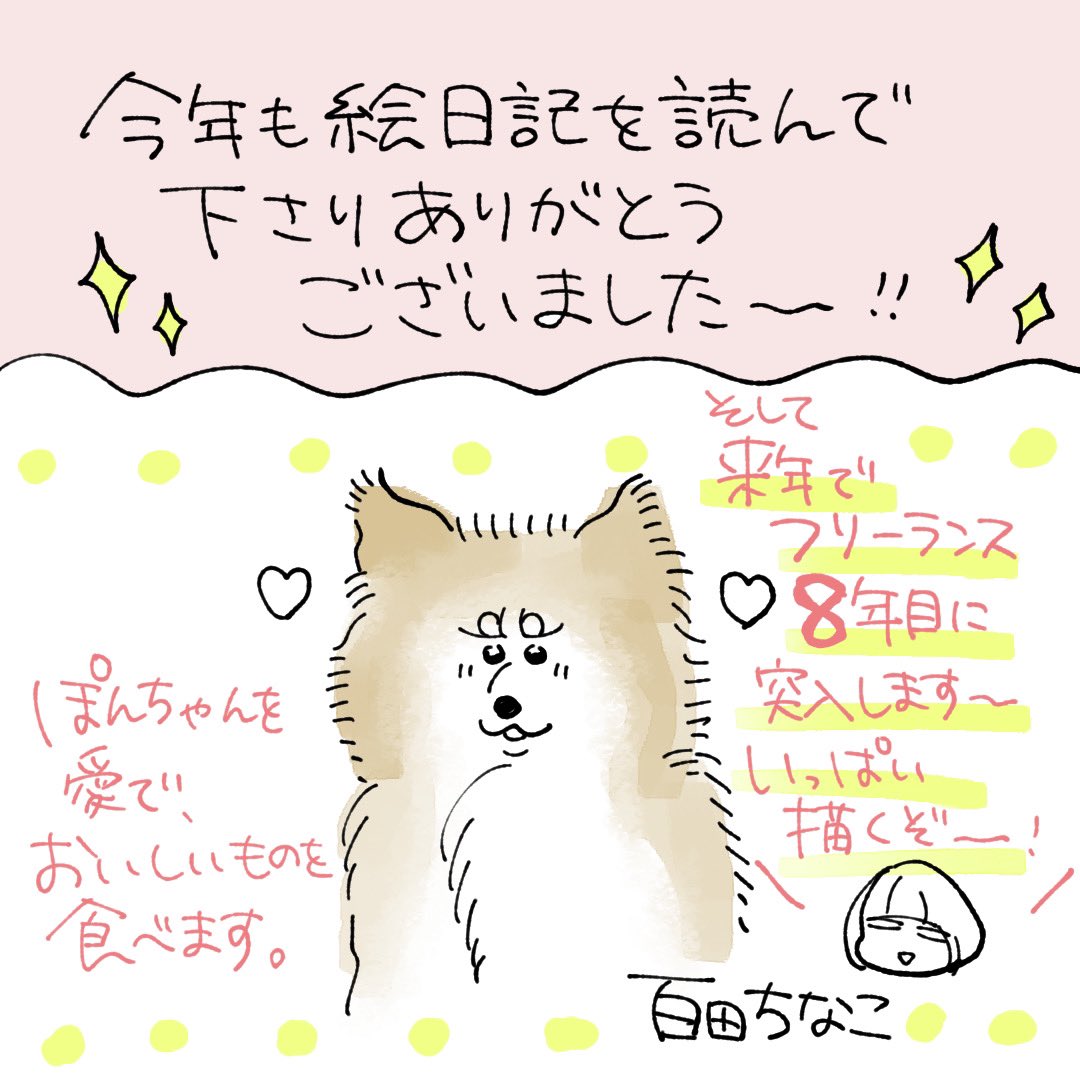 今年も絵日記を読んで
下さりありがとう
ございました〜!!
そして
来年で
フリーランス
8年目に
突入します〜
いっぱい
描くぞ〜!
ぽんちゃんを
愛で、
おいしいものを
食べます。
百田ちなこ